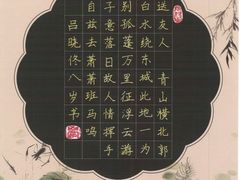 送友人 青山横北郭
白水绕东城此地一为
别孤蓬万里征浮云游
子意落日故人情挥手
自兹去萧萧班马鸣
吕晓佟八岁书